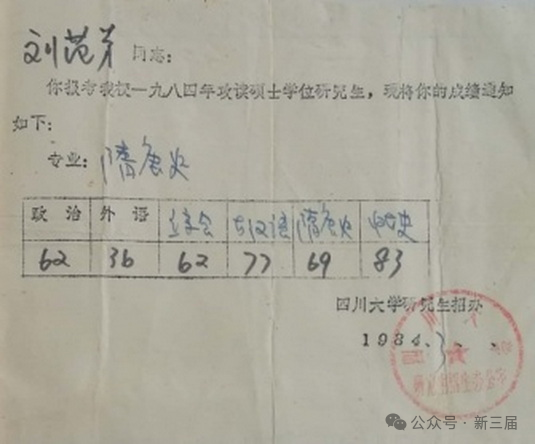 刘范弟 同志:
你报考我校一九八四年攻读硕士学位研究生，现将你的成绩通知
如下:
专业: 隋唐史
政治 外语 古汉语 隋唐史
62 36 62 77 69 83
四川大学研究生招办
1984.3.
公众号·新三届